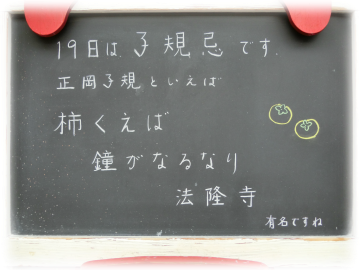 19日は、子規忌です。
正岡子規といえば
柿くえば
鐘がなるなり
法隆寺
有名ですね